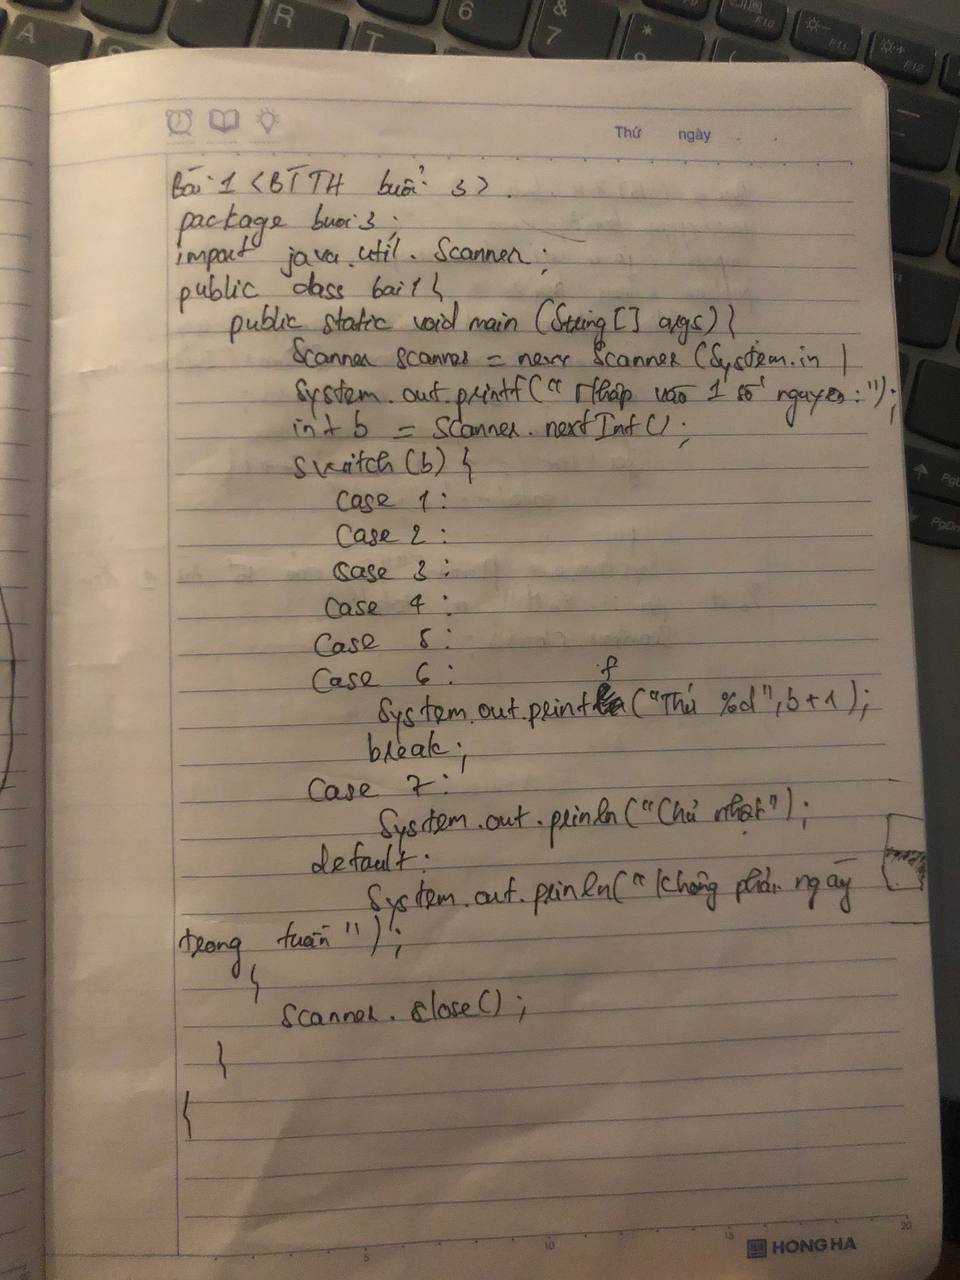 A
R
T
6
&
7
*
(
F10
F11
F12
PgU
PgDn
Thứ ngày
Bài 1 <BTTH buổi 3>.
package buoi3;
import java.util.Scanner;
public class bai1{
public static void main (String[] args){
Scanner scanner = new Scanner (System.in)
System.out.printf("Nhập vào 1 số nguyên:");
int b = scanner.nextInt();
switch(b) {
case 1:
case 2:
case 3:
case 4:
case 5:
case 6:
System.out.printf("Thứ %d",b+1);
break;
case 7:
System.out.prinln("Chủ nhật");
default:
System.out.prinln("Không phải ngày
trong tuần");
}
scanner.close();
}
}
5
10
15
20
HONG HA